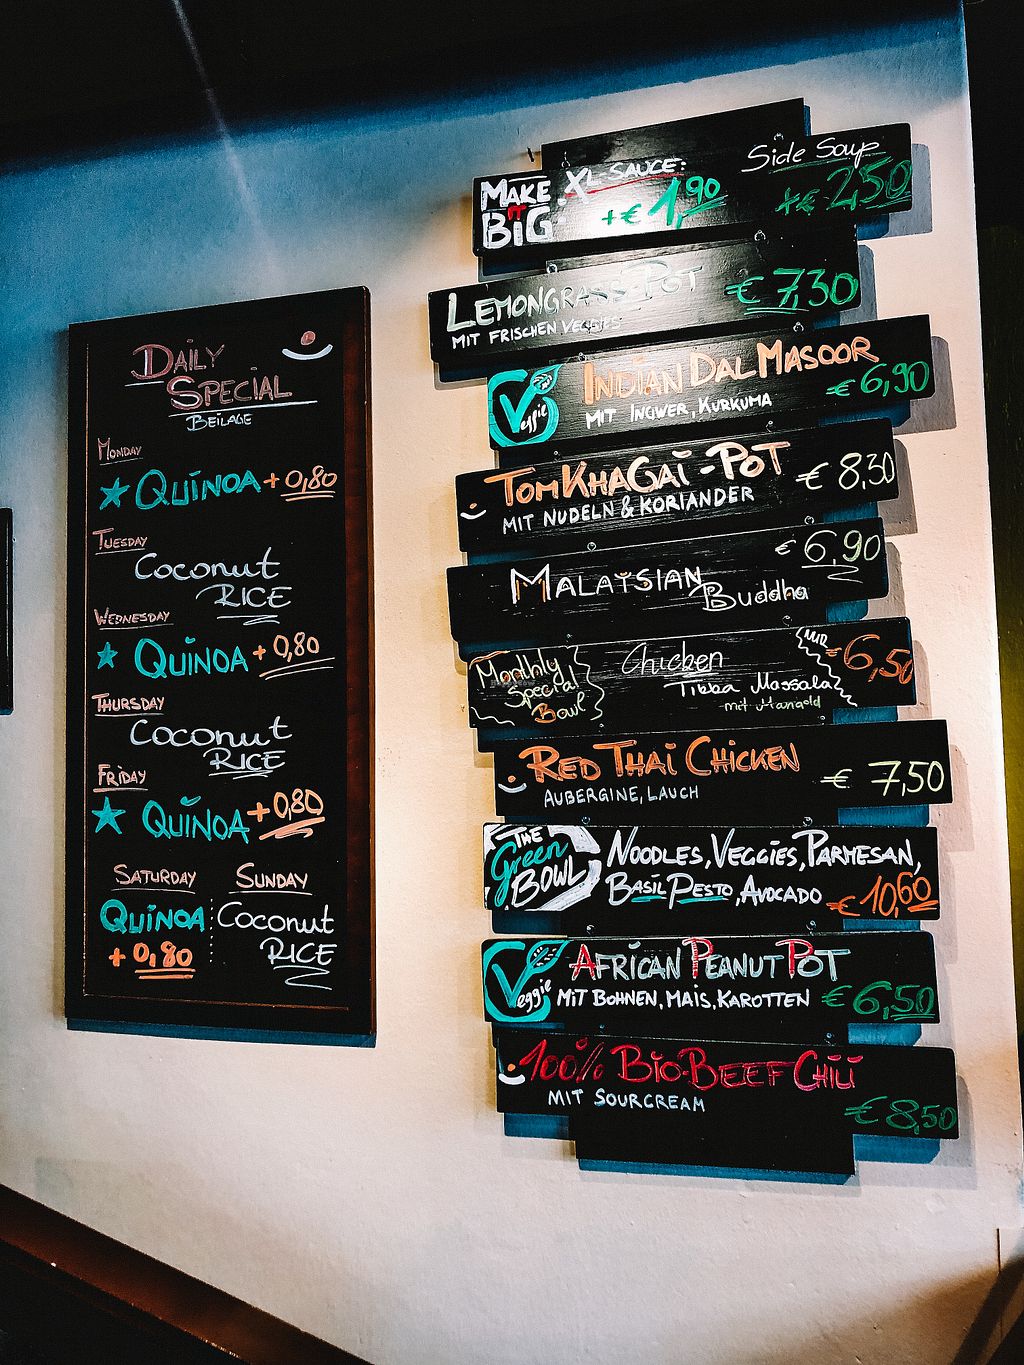 DAILY
SPECIAL
BEILAGE
MONDAY
QUINOA + 0,80
TUESDAY
Coconut
RICE
WEDNESDAY
QUINOA + 0,80
THURSDAY
Coconut
RICE
FRIDAY
QUINOA + 0,80
SATURDAY
QUINOA
+ 0,80
SUNDAY
Coconut
RICE
MAKE
IT
BIG:
XL-SAUCE:
+€ 1,90
Side Soup
+€ 2,50
LEMONGRASS-POT € 7,30
MIT FRISCHEN VEGGIES
Veggie
INDIAN DAL MASOOR
MIT INGWER, KURKUMA
€ 6,90
TOM KHA GAI-POT € 8,30
MIT NUDELN & KORIANDER
€ 6,90
MALAYSIAN
Buddha
Monthly
Special
Bowl
Chicken
Tikka Massala
mit Mangold
NUR € 6,50
RED THAI CHICKEN € 7,50
AUBERGINE, LAUCH
THE
Green
BOWL
NOODLES, VEGGIES, PARMESAN,
BASIL PESTO, AVOCADO € 10,60
Veggie
AFRICAN PEANUT POT
MIT BOHNEN, MAIS, KAROTTEN € 6,50
100% BIO-BEEF CHILI
MIT SOURCREAM
€ 8,50